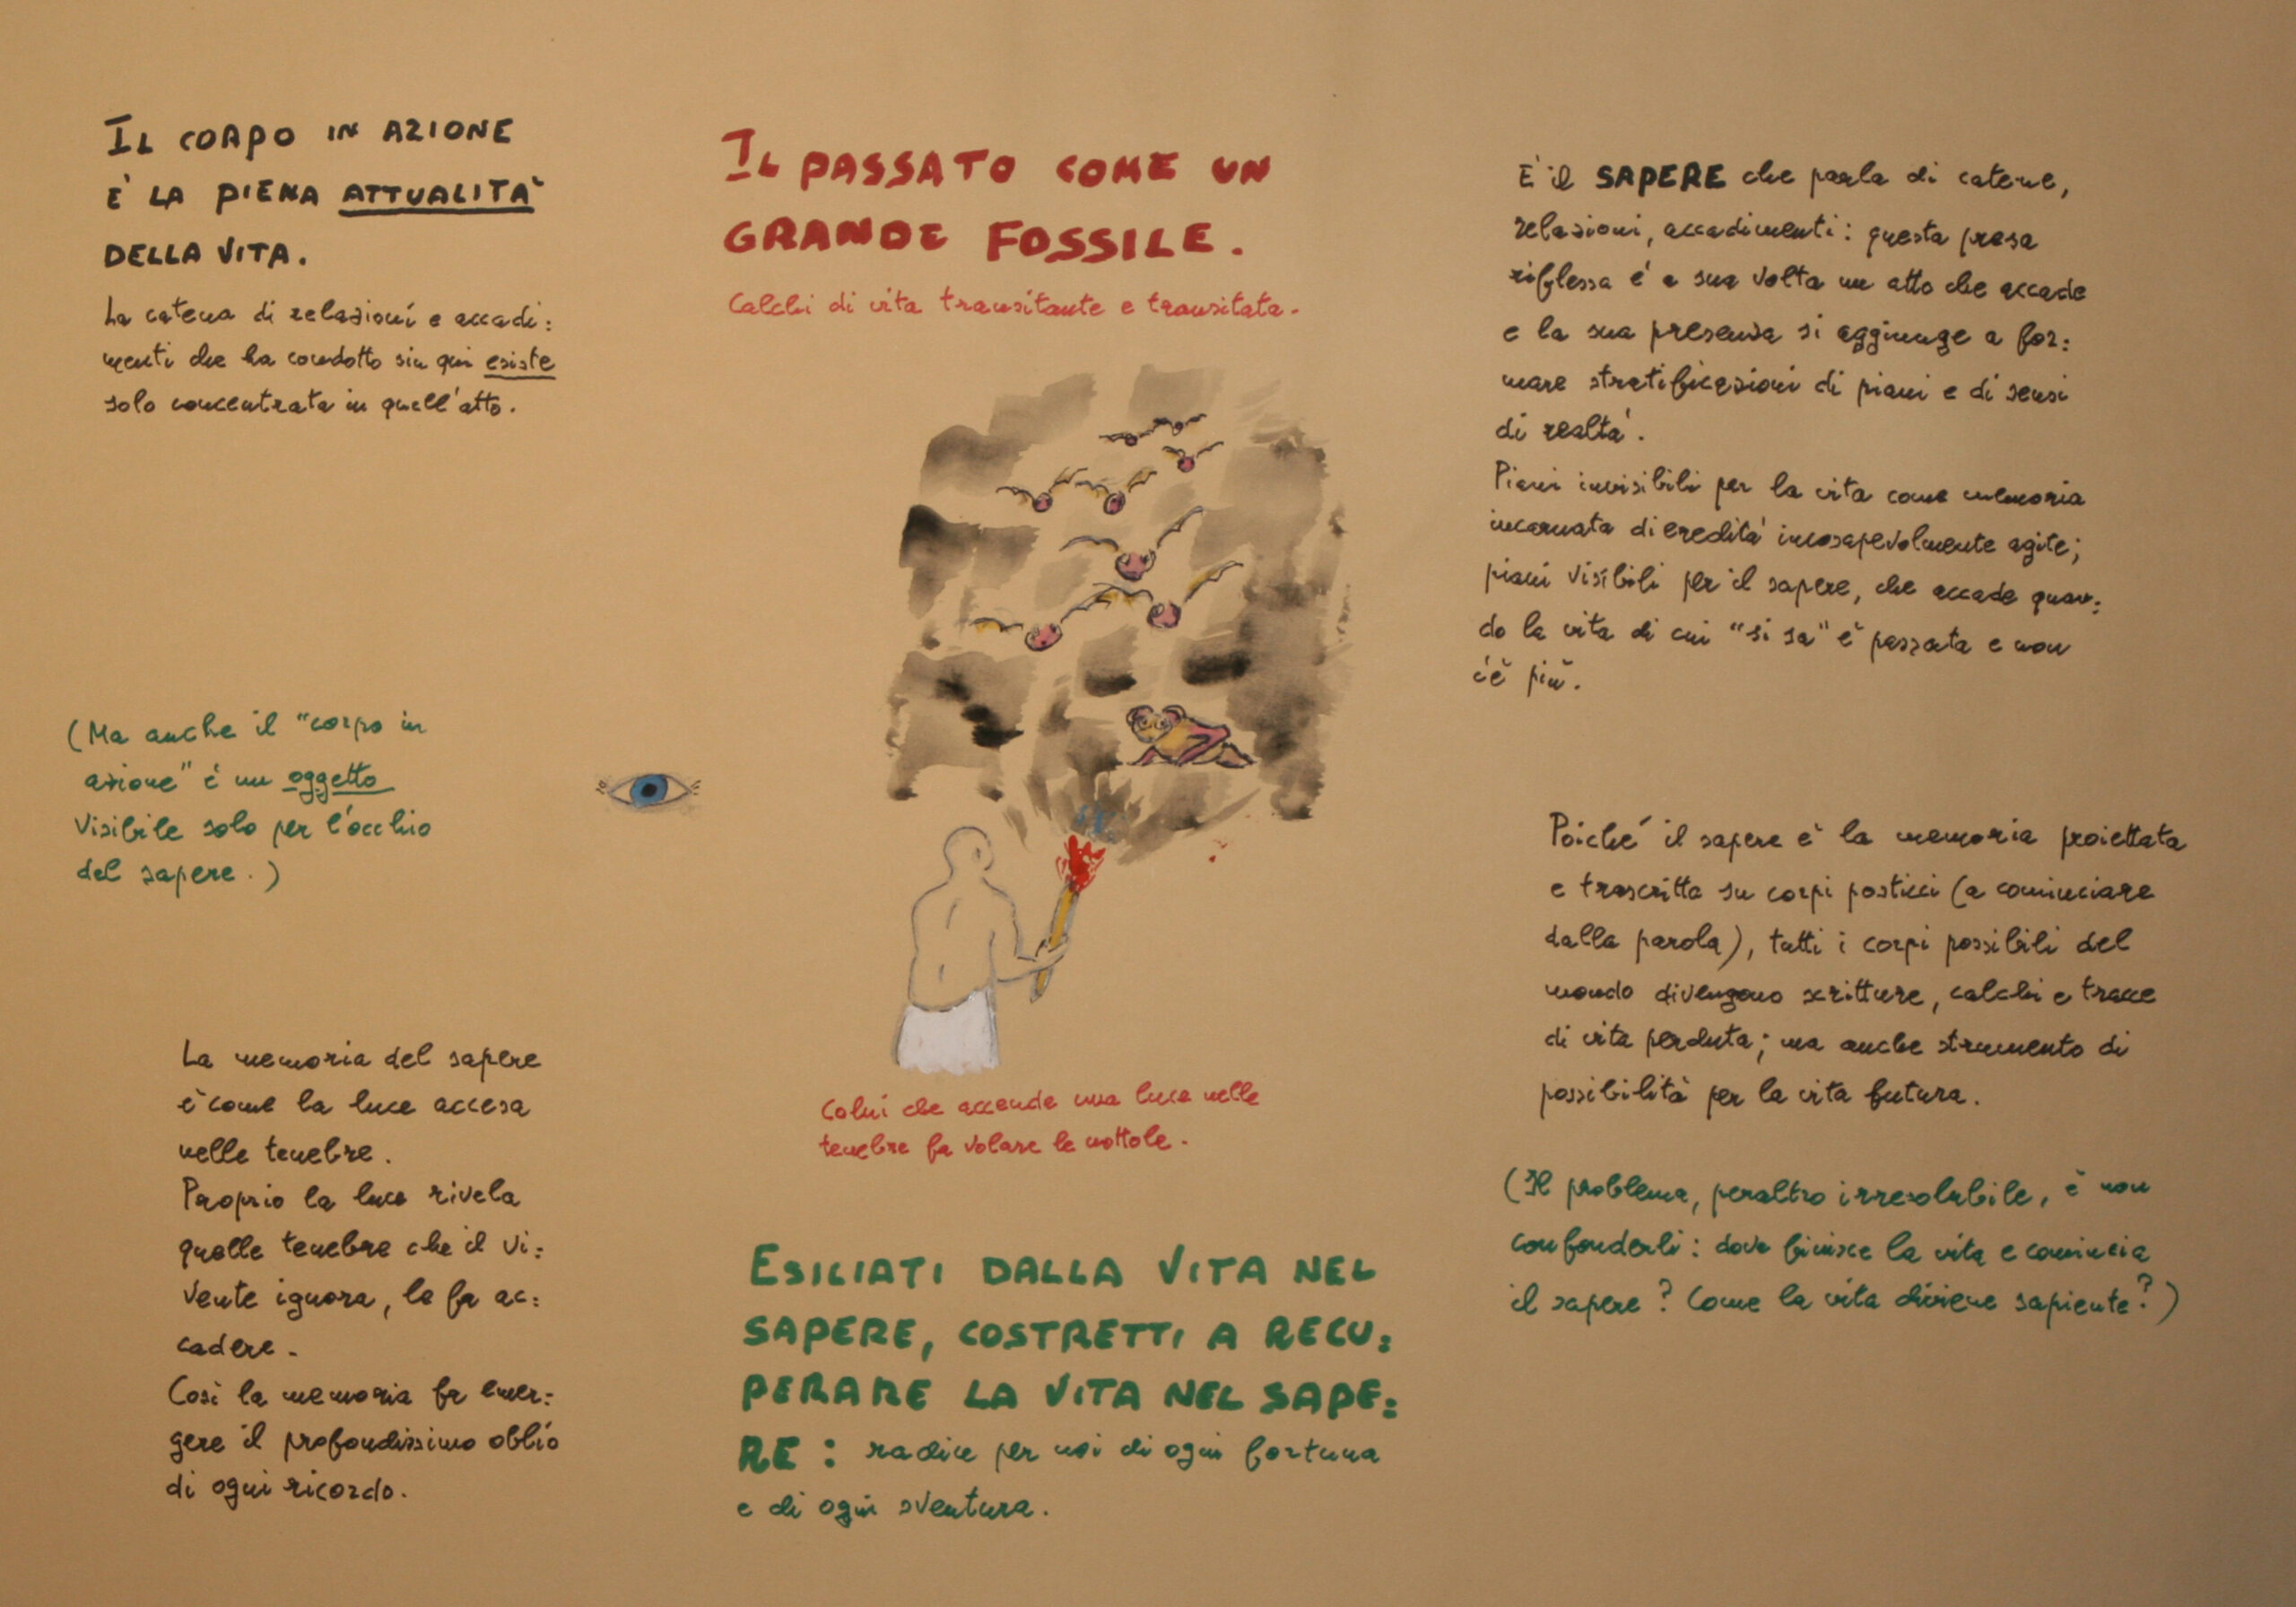 IL CORPO IN AZIONE
E' LA PIENA ATTUALITA'
DELLA VITA.
La catena di relazioni e accadi:
menti che ha condotto sin qui esiste
solo concentrata in quell'atto.
(Ma anche il "corpo in
azione" è un oggetto
visibile solo per l'occhio
del sapere.)
La memoria del sapere
è come la luce accesa
nelle tenebre.
Proprio la luce rivela
quelle tenebre che il vi:
vente ignora, le fa ac:
cadere.
Così la memoria fa emer:
gere il profondissimo oblio
di ogni ricordo.
IL PASSATO COME UN
GRANDE FOSSILE.
Calchi di vita transitante e transitata.
Colui che accende una luce nelle
tenebre fa volare le nottole.
ESILIATI DALLA VITA NEL
SAPERE, COSTRETTI A RECU:
PERARE LA VITA NEL SAPE:
RE : radice per noi di ogni fortuna
e di ogni sventura.
E' il SAPERE che parla di catene,
relazioni, accadimenti: questa presa
riflessa è a sua volta un atto che accade
e la sua presenza si aggiunge a for:
mare stratificazioni di piani e di sensi
di realtà.
Piani invisibili per la vita come memoria
incarnata di eredità incosapevolmente agite;
piani visibili per il sapere, che accade quan:
do la vita di cui "si sa" è passata e non
c'è più.
Poiché il sapere è la memoria proiettata
e trascritta su corpi posticci (a cominciare
dalla parola), tutti i corpi possibili del
mondo divengono scritture, calchi e tracce
di vita perduta; ma anche strumento di
possibilità per la vita futura.
(Il problema, peraltro irresolubile, è non
confonderli: dove finisce la vita e comincia
il sapere? Come la vita diviene sapiente?)